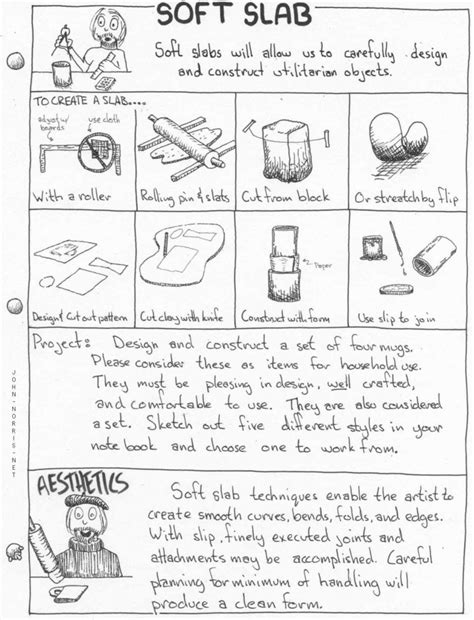 SOFT SLAB
Soft slabs will allow us to carefully design
and construct utilitarian objects.
TO CREATE A SLAB....
adjust w/
boards
use cloth
With a roller
Rolling pin & slats
Cut from block
Or streatch by flip
Design & Cut out pattern
Cut clay with knife
Paper
Construct with form
Use slip to join
Project: Design and construct a set of four mugs.
Please consider these as items for household use.
They must be pleasing in design, well crafted,
and comfortable to use. They are also considered
a set. Sketch out five different styles in your
note book and choose one to work from.
JOHN-NORRIS-NET
AESTHETICS
Soft slab techniques enable the artist to
create smooth curves, bends, folds, and edges.
With slip, finely executed joints and
attachments may be accomplished. Careful
planning for minimum of handling will
produce a clean form.